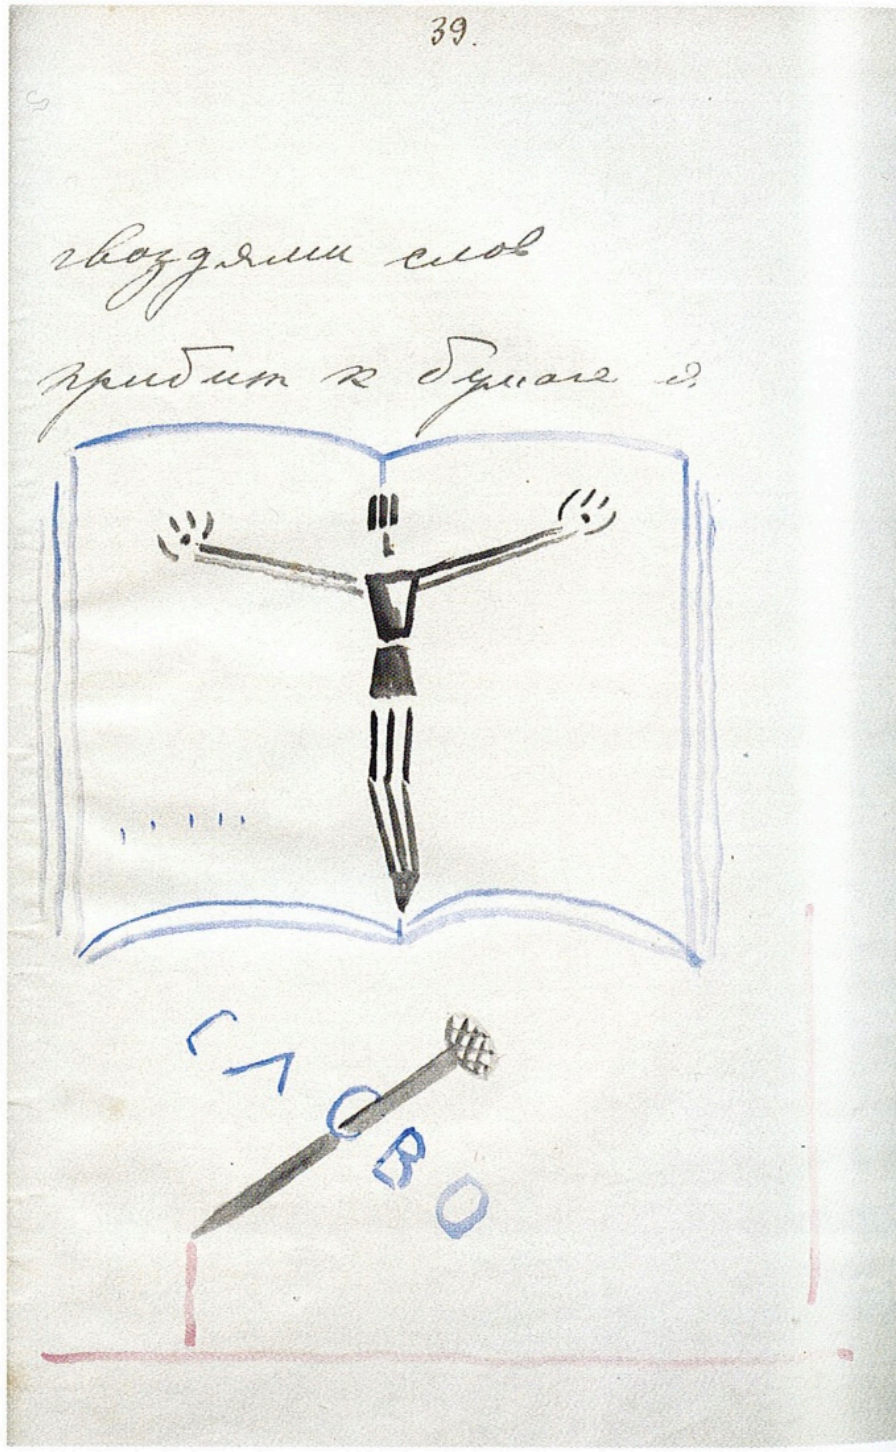 39.
гвоздями слов
прибит к бумаге я.
СЛОВО